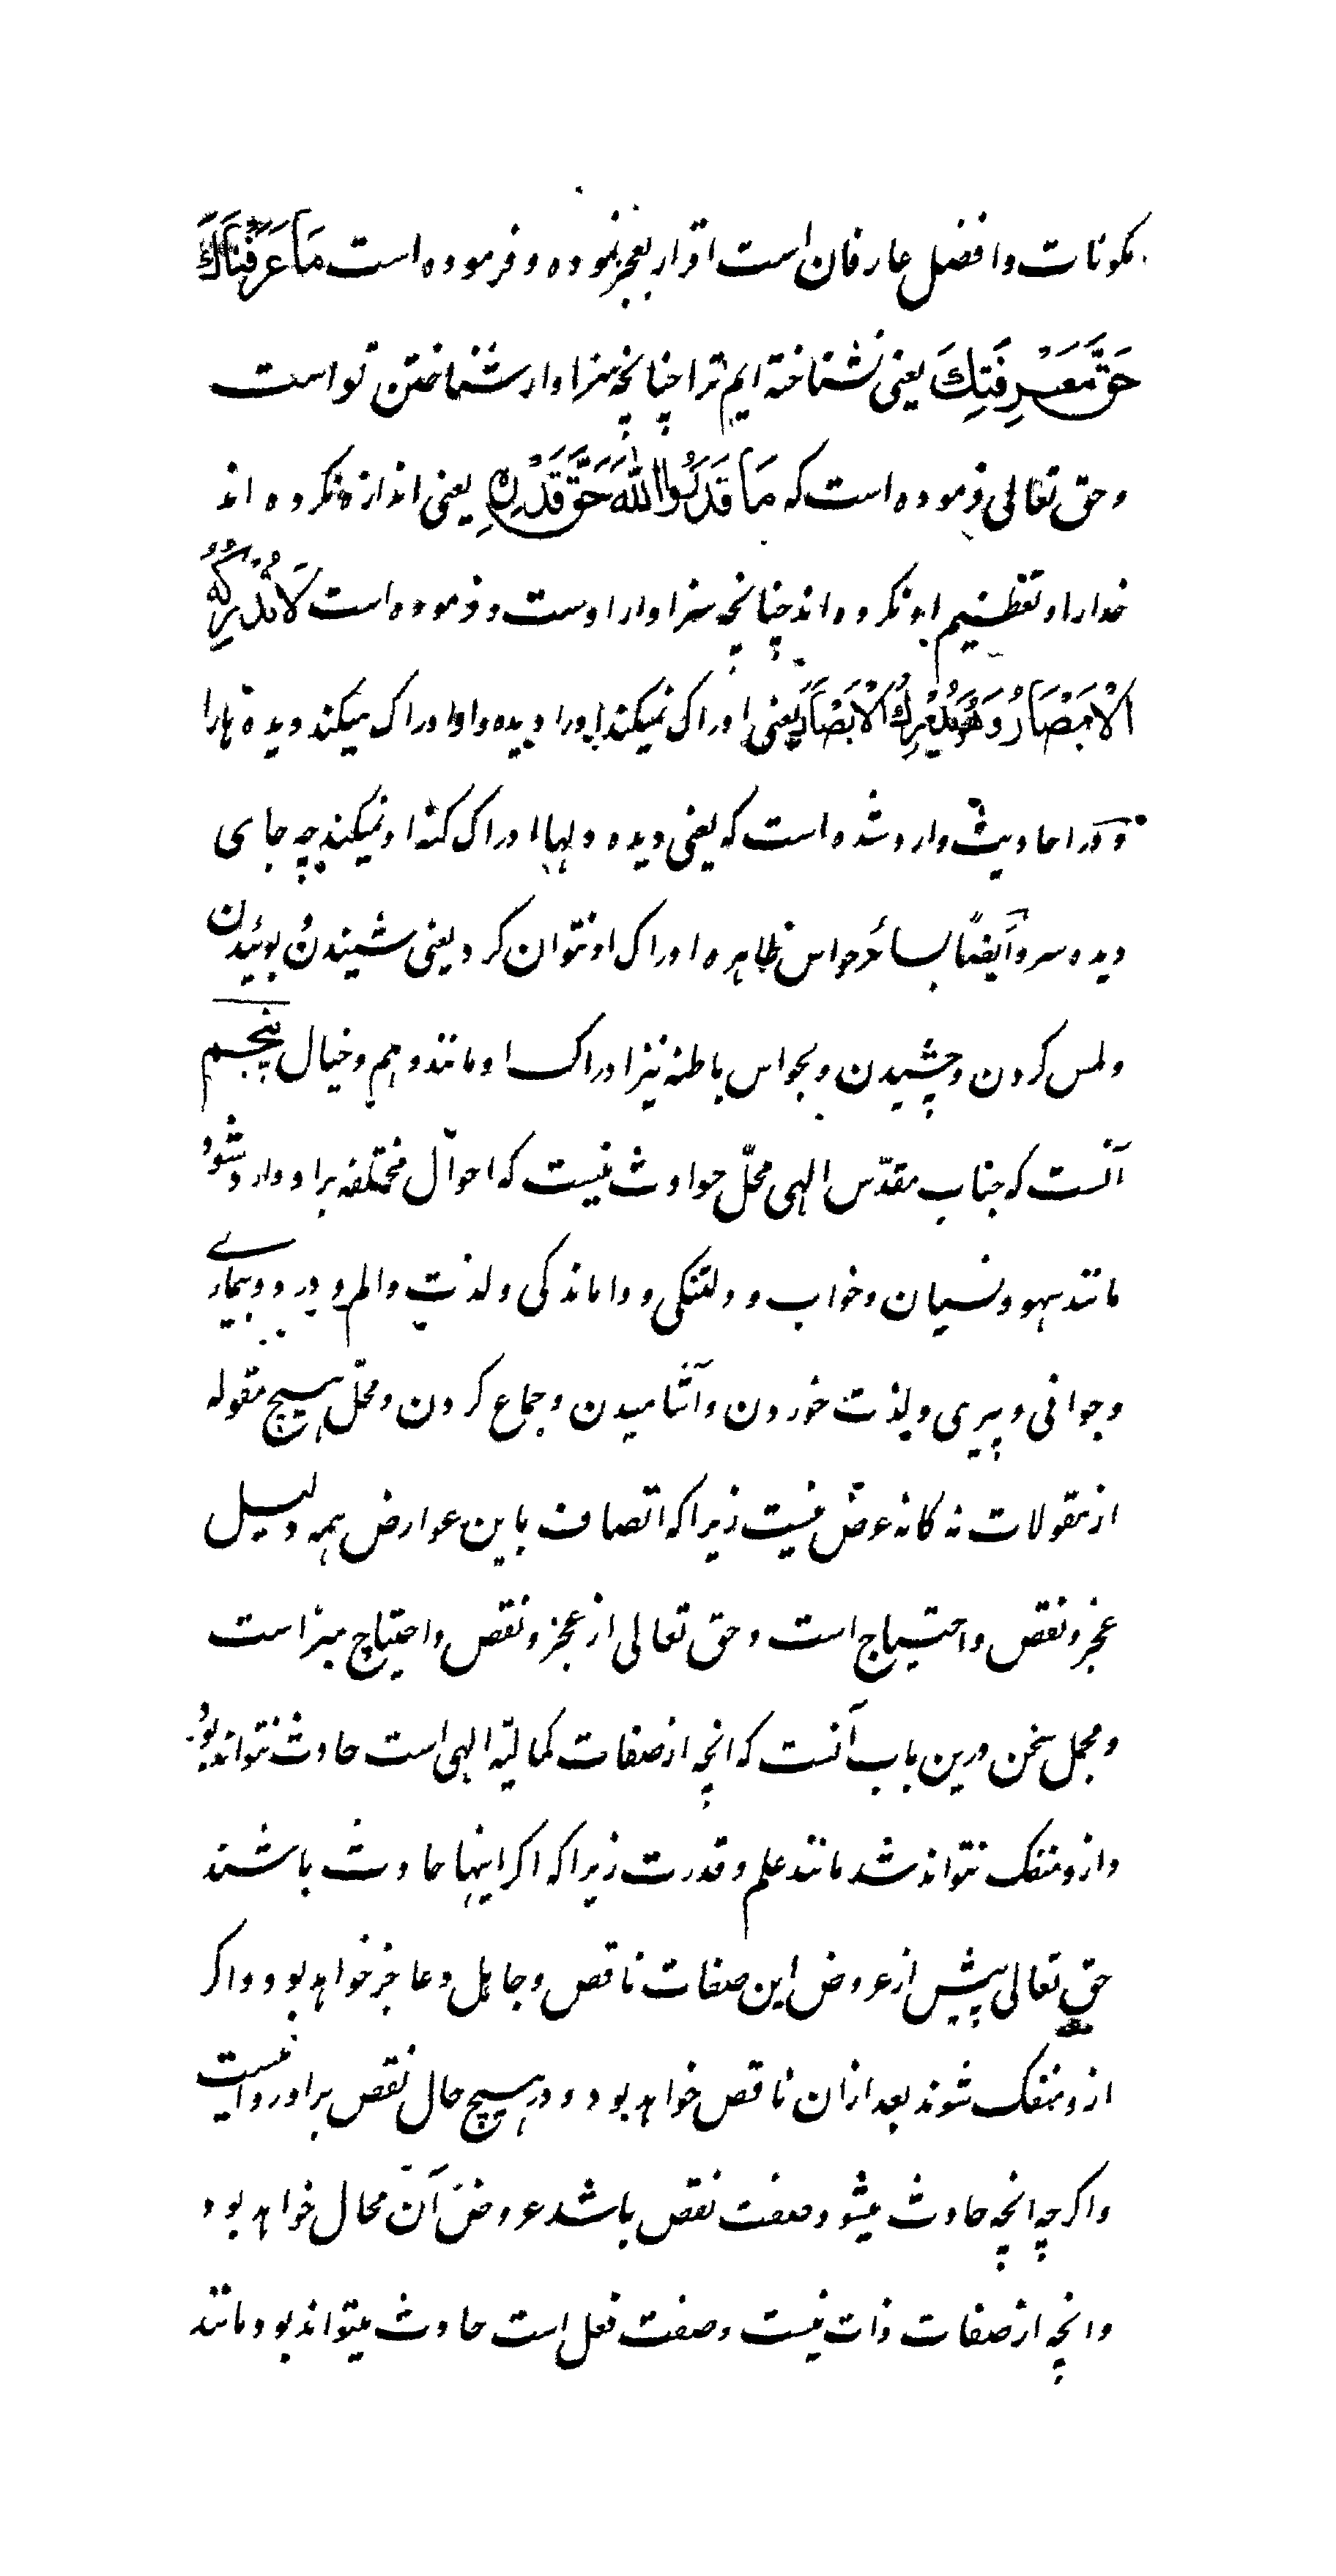 مکونات وافضل عارفان است اقرار بعجز نموده و فرموده است مَا عَرَفْنَاكَ
حَقَّ مَعْرِفَتِكَ یعنی نشناخته ایم ترا چنانچه سزاوار شناختن تو است
و حق تعالی فرموده است که مَا قَدَرُوا اللهَ حَقَّ قَدْرِهِ یعنی اندازه نکرده اند
خدا را و تعظیم او نکرده اند چنانچه سزاوار اوست و فرموده است لَا تُدْرِكُهُ
الْاَبْصَارُ وَهُوَ يُدْرِكُ الْاَبْصَارَ یعنی ادراک نمیکند او را دیده و او ادراک میکند دیده ها را
و در احادیث وارد شده است که یعنی دیده دلها ادراک کنه او نمیکند چه جای
دیده سر و اَیضاً بسائر حواس ظاهره ادراک او نتوان کرد یعنی شنیدن و بوئیدن
و لمس کردن و چشیدن و بحواس باطنه نیز ادراک او مانند وهم و خیال پنجم
آنست که جناب مقدّس الهی محلّ حوادث نیست که احوال مختلفه بر او وارد شود
مانند سهو و نسیان و خواب و دلتنکی و واماندکی و لذت و الم و درد و بیماری
و جوانی و پیری و لذت خوردن و آشامیدن و جماع کردن و محلّ هیچ مقوله
از مقولات نه کانه عرض نیست زیرا که اتصاف باین عوارض همه دلیل
عجز و نقص و احتیاج است و حق تعالی از عجز و نقص و احتیاج مبرّا است
و مجمل سخن درین باب آنست که انچه از صفات کمالیّه الهی است حادث نتواند بود
و ازو منفک نتواند شد مانند علم و قدرت زیرا که اکر اینها حادث باشند
حق تعالی پیش از عروض این صفات ناقص و جاهل و عاجز خواهد بود و اکر
ازو منفک شوند بعد ازان ناقص خواهد بود و در هیچ حال نقص بر او روا نیست
و اکر چه انچه حادث میشود صفت نقص باشد عروض آن محال خواهد بود
و انچه از صفات ذات نیست و صفت فعل است حادث میتواند بود مانند